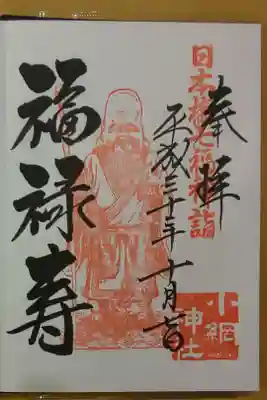 奉拝
日本橋七福神詣
平成三十年十月
小網
神社
福禄寿